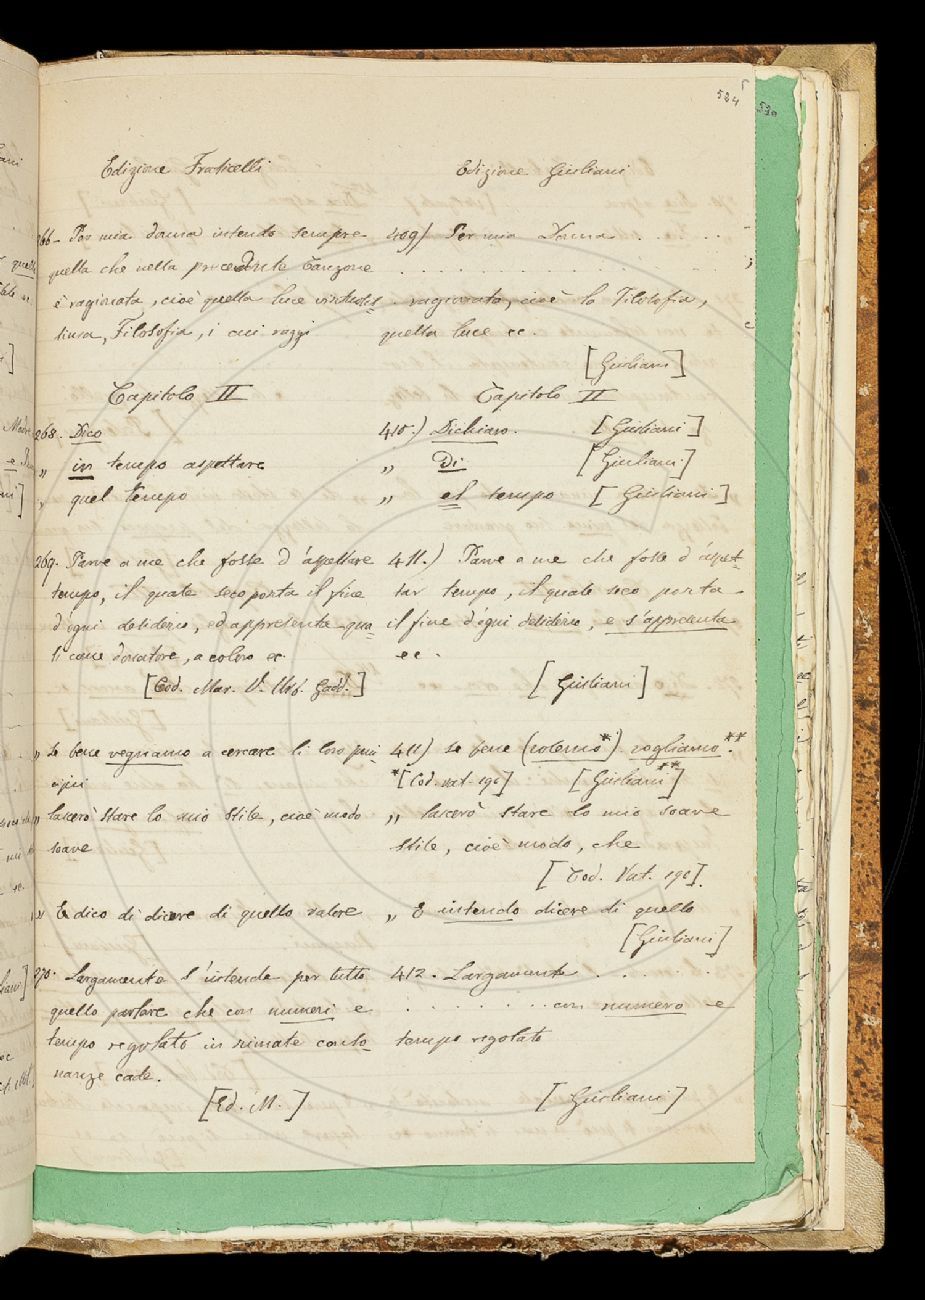 524
530
Edizione Fraticelli
266 - Per mia donna intendo sempre
quella che nella precedente Canzone
è ragionata, cioè quella luce virtudis-
sima, Filosofia, i cui raggi
Capitolo II
268. Dico
„ in tempo aspettare
„ quel tempo
269. Parve a me che fosse d'aspettare
tempo, il quale seco porta il fine
d'ogni desiderio, ed appresenta qua-
si come donatore, a coloro ec.
[Cod. Mar. V. Urb. Gadd.]
„ Se bene vegnamo a cercare li loro prin-
cipii
„ lascerò stare lo mio stile, cioè modo
soave
„ E dico di dicere di quello valore
270. Largamente s'intende per tutto
quello parlare che con numeri e
tempo regolato in rimate conso-
nanze cade.
[Ed. M.]
Edizione Giuliani
409) Per mia Donna . . . .
. . . . . . . . . . . . . . . .
. ragionata, cioè la Filosofia,
quella luce ec.
[Giuliani]
Capitolo II
410.) Dichiaro. [Giuliani]
„ Di [Giuliani]
„ el tempo [Giuliani]
411.) Parve a me che fosse d'aspet-
tar tempo, il quale seco porta
il fine d'ogni desiderio, e s'appresenta
ec.
[Giuliani]
411) se bene (volemo*) vogliamo.**
*[Cod. Vat. 190] [Giuliani**]
„ lascerò stare lo mio soave
stile, cioè modo, che
[Cod. Vat. 190].
„ E intendo dicere di quello
[Giuliani]
412. Largamente . . . . .
. . . . . . . . con numero e
tempo regolato
[Giuliani]